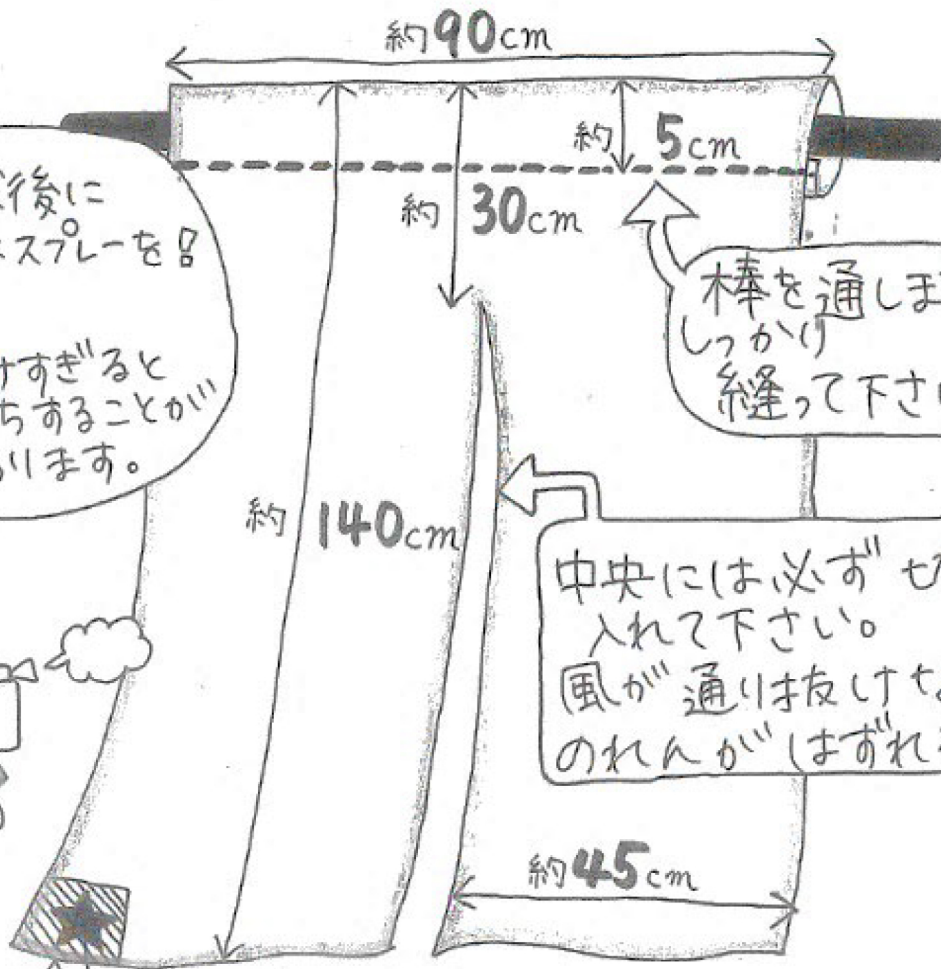 約90cm
約 5cm
約 30cm
後に
スプレーを
すぎると
ちすることが
ります。
棒を通しま
しっかり
縫って下さ
約 140cm
中央には必ず
入れて下さい。
風が通り抜けな
のれんがはずれ
約45cm